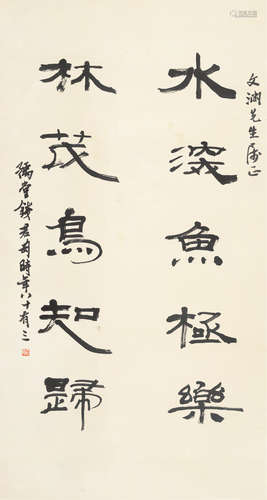 文渊先生属正
水深魚極樂
林茂鳥知歸
豫堂錢君匋時年八十有三